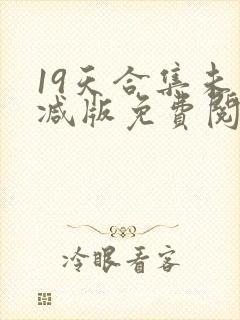 19天合集未
减版免費閱
冷眼看客